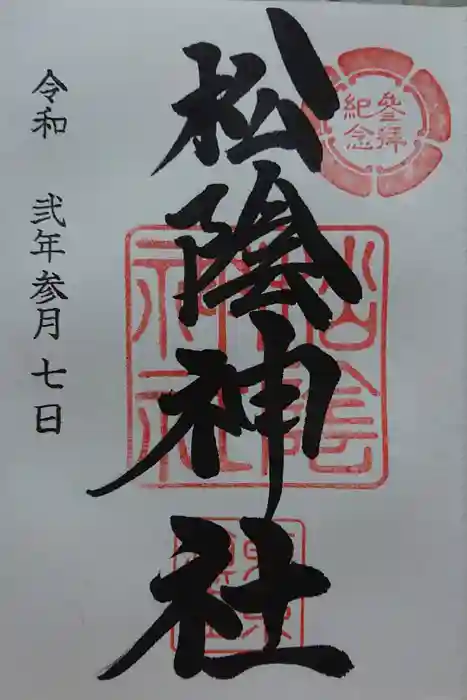 參拝
紀念
松陰神社
松陰神社
令和 弐年参月七日